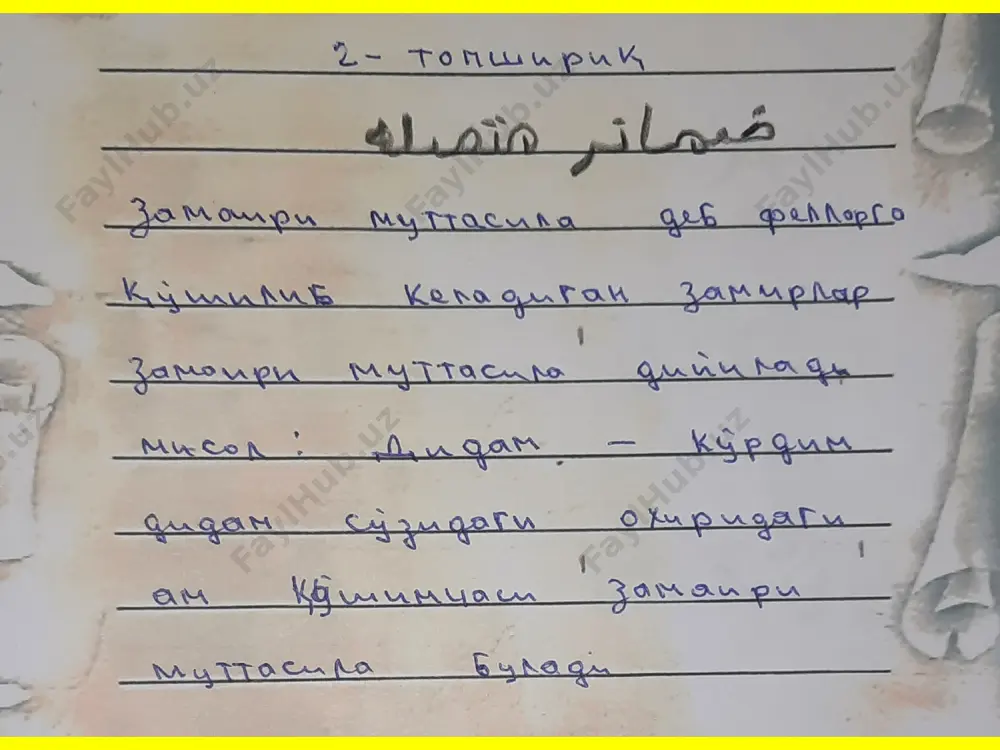 2- топшириқ
ضمائر متصله
Замоири муттасила деб феллорго
Қўшилиб келадиган замирлар
Замоири муттасила дийилади
мисол: Дидам – кўрдим
дидам сўзидаги охиридаги
ам Қўшимчаси Замаири
муттасила Булади
FaylHub.uz